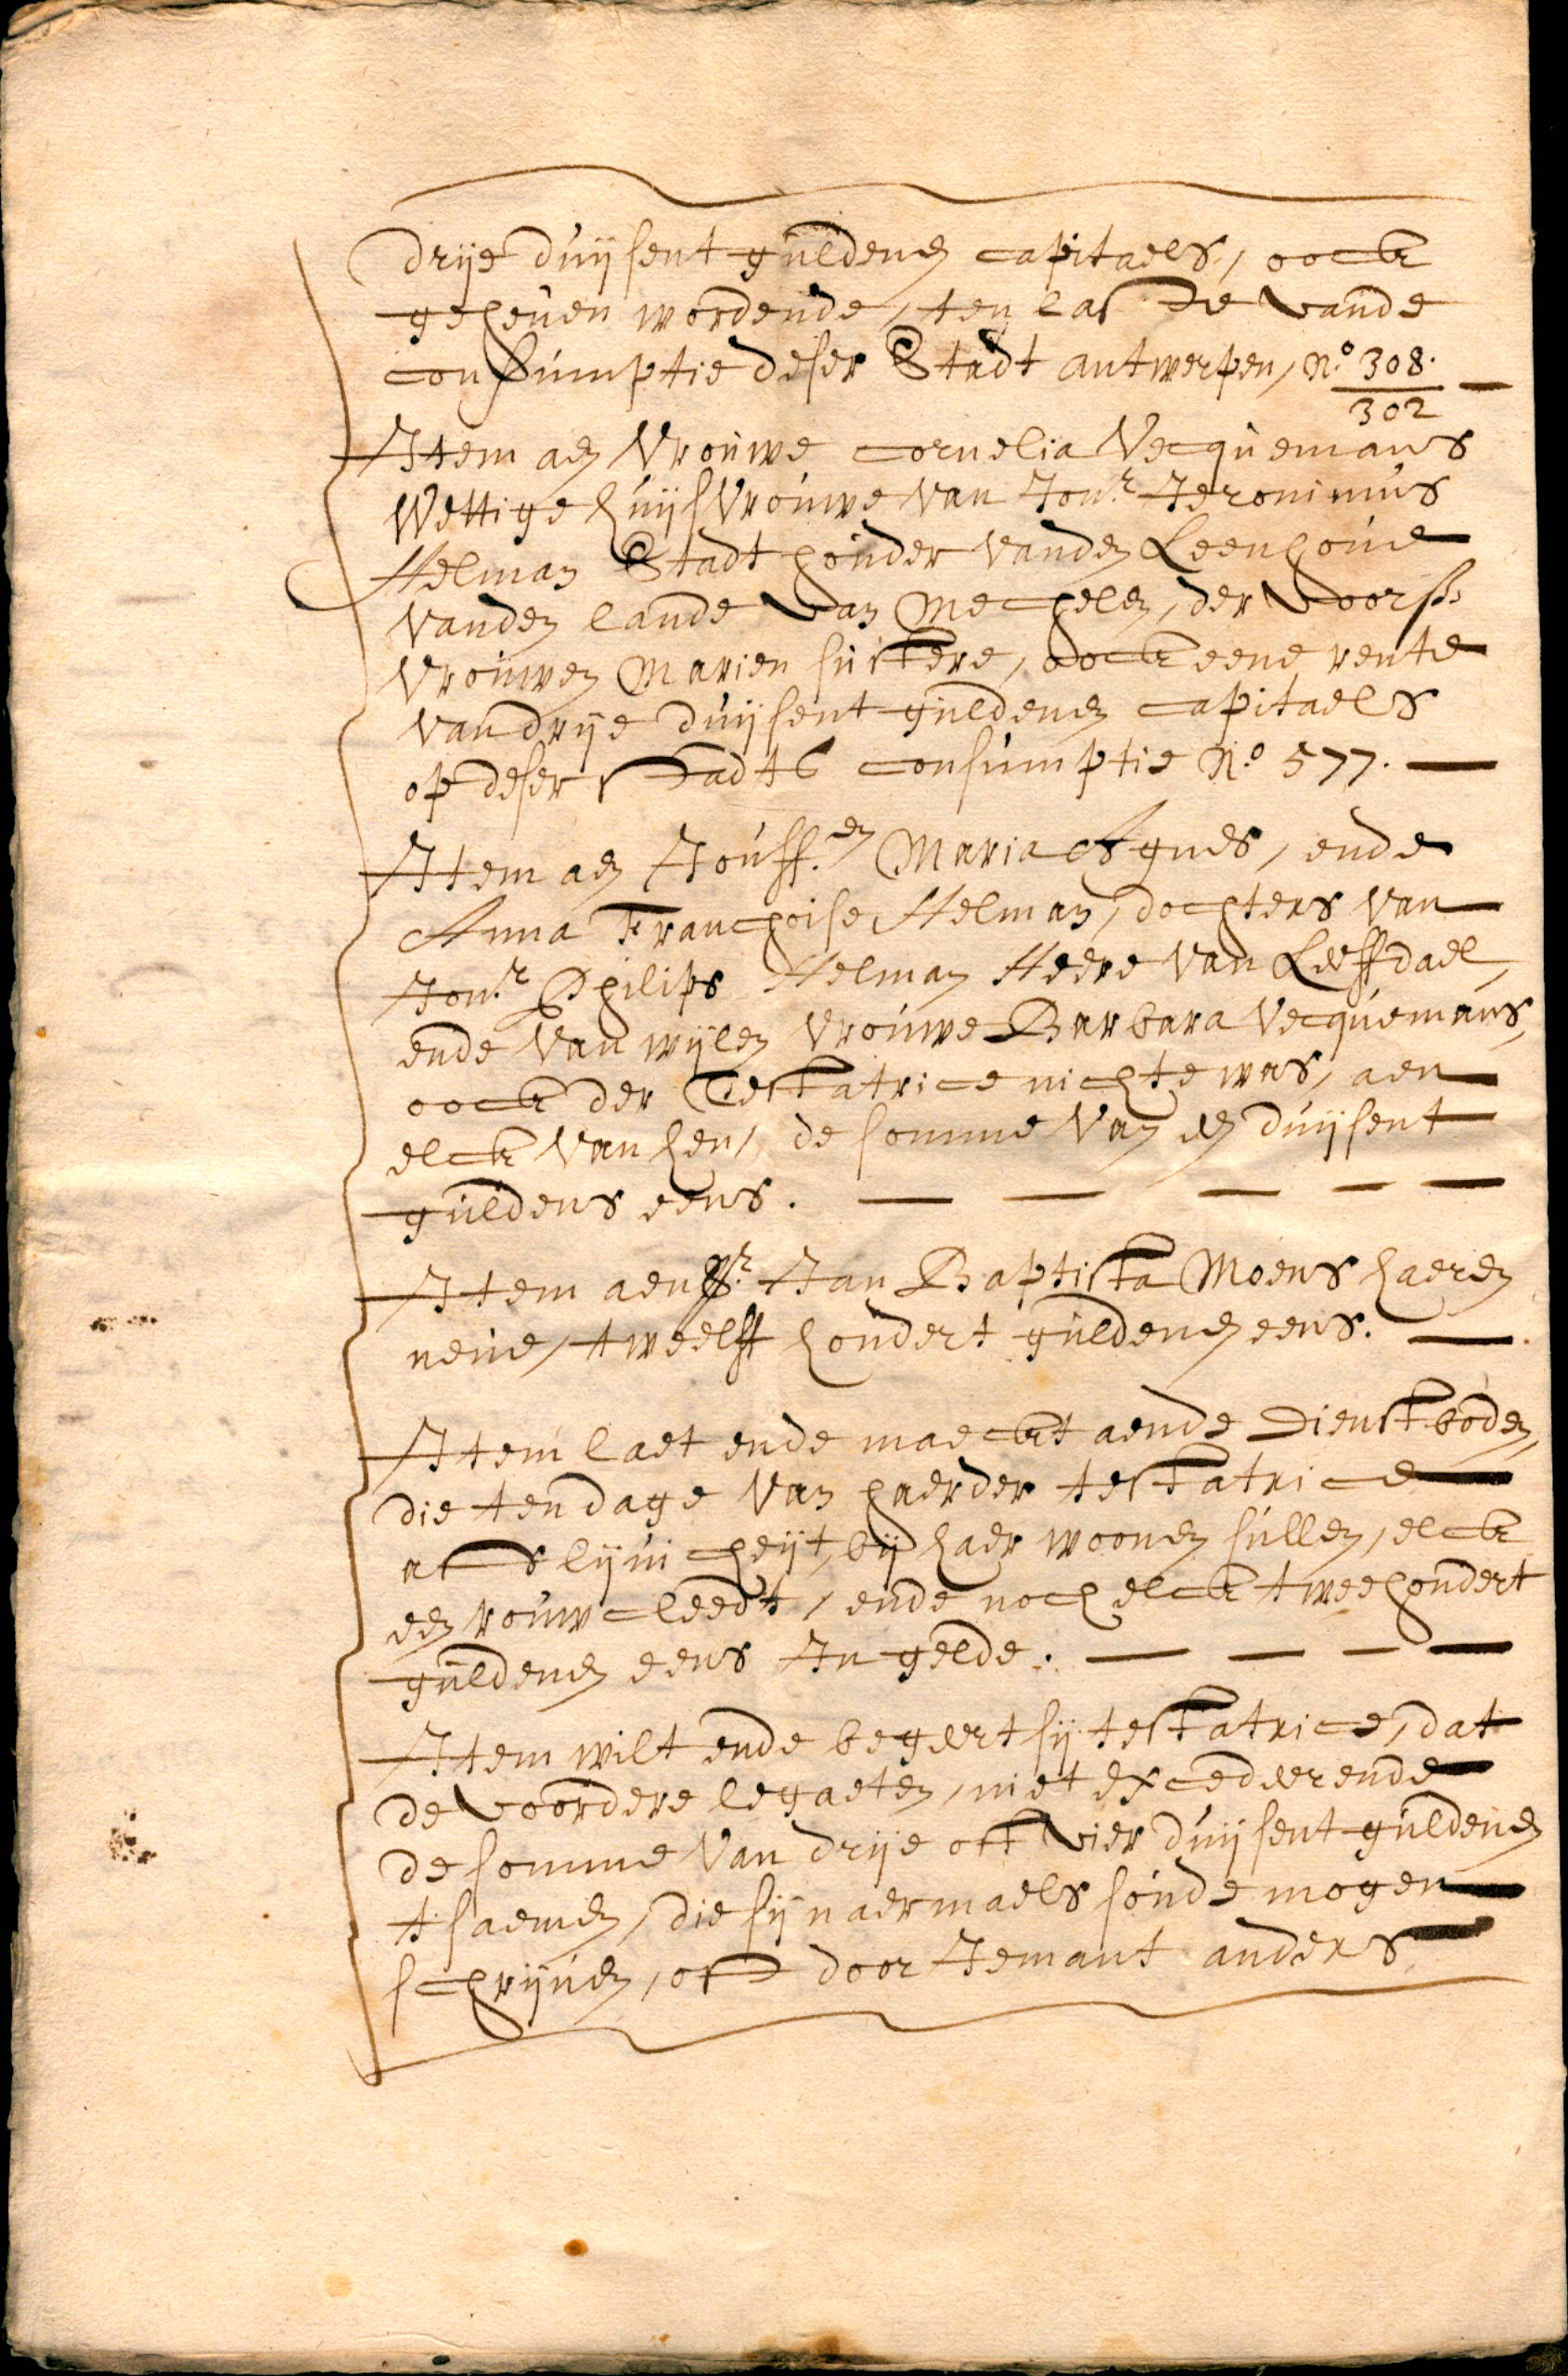 drije duijsent guldens capitaels, oock
geheuen wordende, ten laste vande
consumptie deser Stadt antwerpen, N.º 308.
302
Item aen Vrouwe Cornelia Vecquemans
Wettige huijsvrouwe van Jon.r Jeronimus
Helman Stadthouder vanden Leenhoue
vanden lande van Mechelen, der voors.
Vrouwen Marien sustere, oock eene rente
van drije duijsent guldens capitaels
op deser stadts consumptie N.º 577.
Item aen Jouff.en Maria Agnes, ende
Anna Franchoise Helman, dochters van
Jon.r Philips Helman Heere van Leeffdael,
ende van wijlen Vrouwe Barbara Vecquemans,
oock der Testatrice nichte was, aen
elck van hen, de somme van een duijsent
guldens eens.
Item aen Sr. Jan Baptista Moens haeren
neue, tweelff hondert guldens eens.
Item laet ende maeckt aende dienstboden,
die ten dage van haerder testatrice
afflijuicheijt, bij haer woonen sullen, elck
een rouwcleedt, ende noch elck tweehondert
guldens eens In gelde.
Item wilt ende begeert sij testatrice, dat
de voordere legaeten, niet excedeerende
de somme van drije oft vier duijsent guldens
tsaemen, die sij naermaels soude mogen
schrijuen, oft door Jemant anders